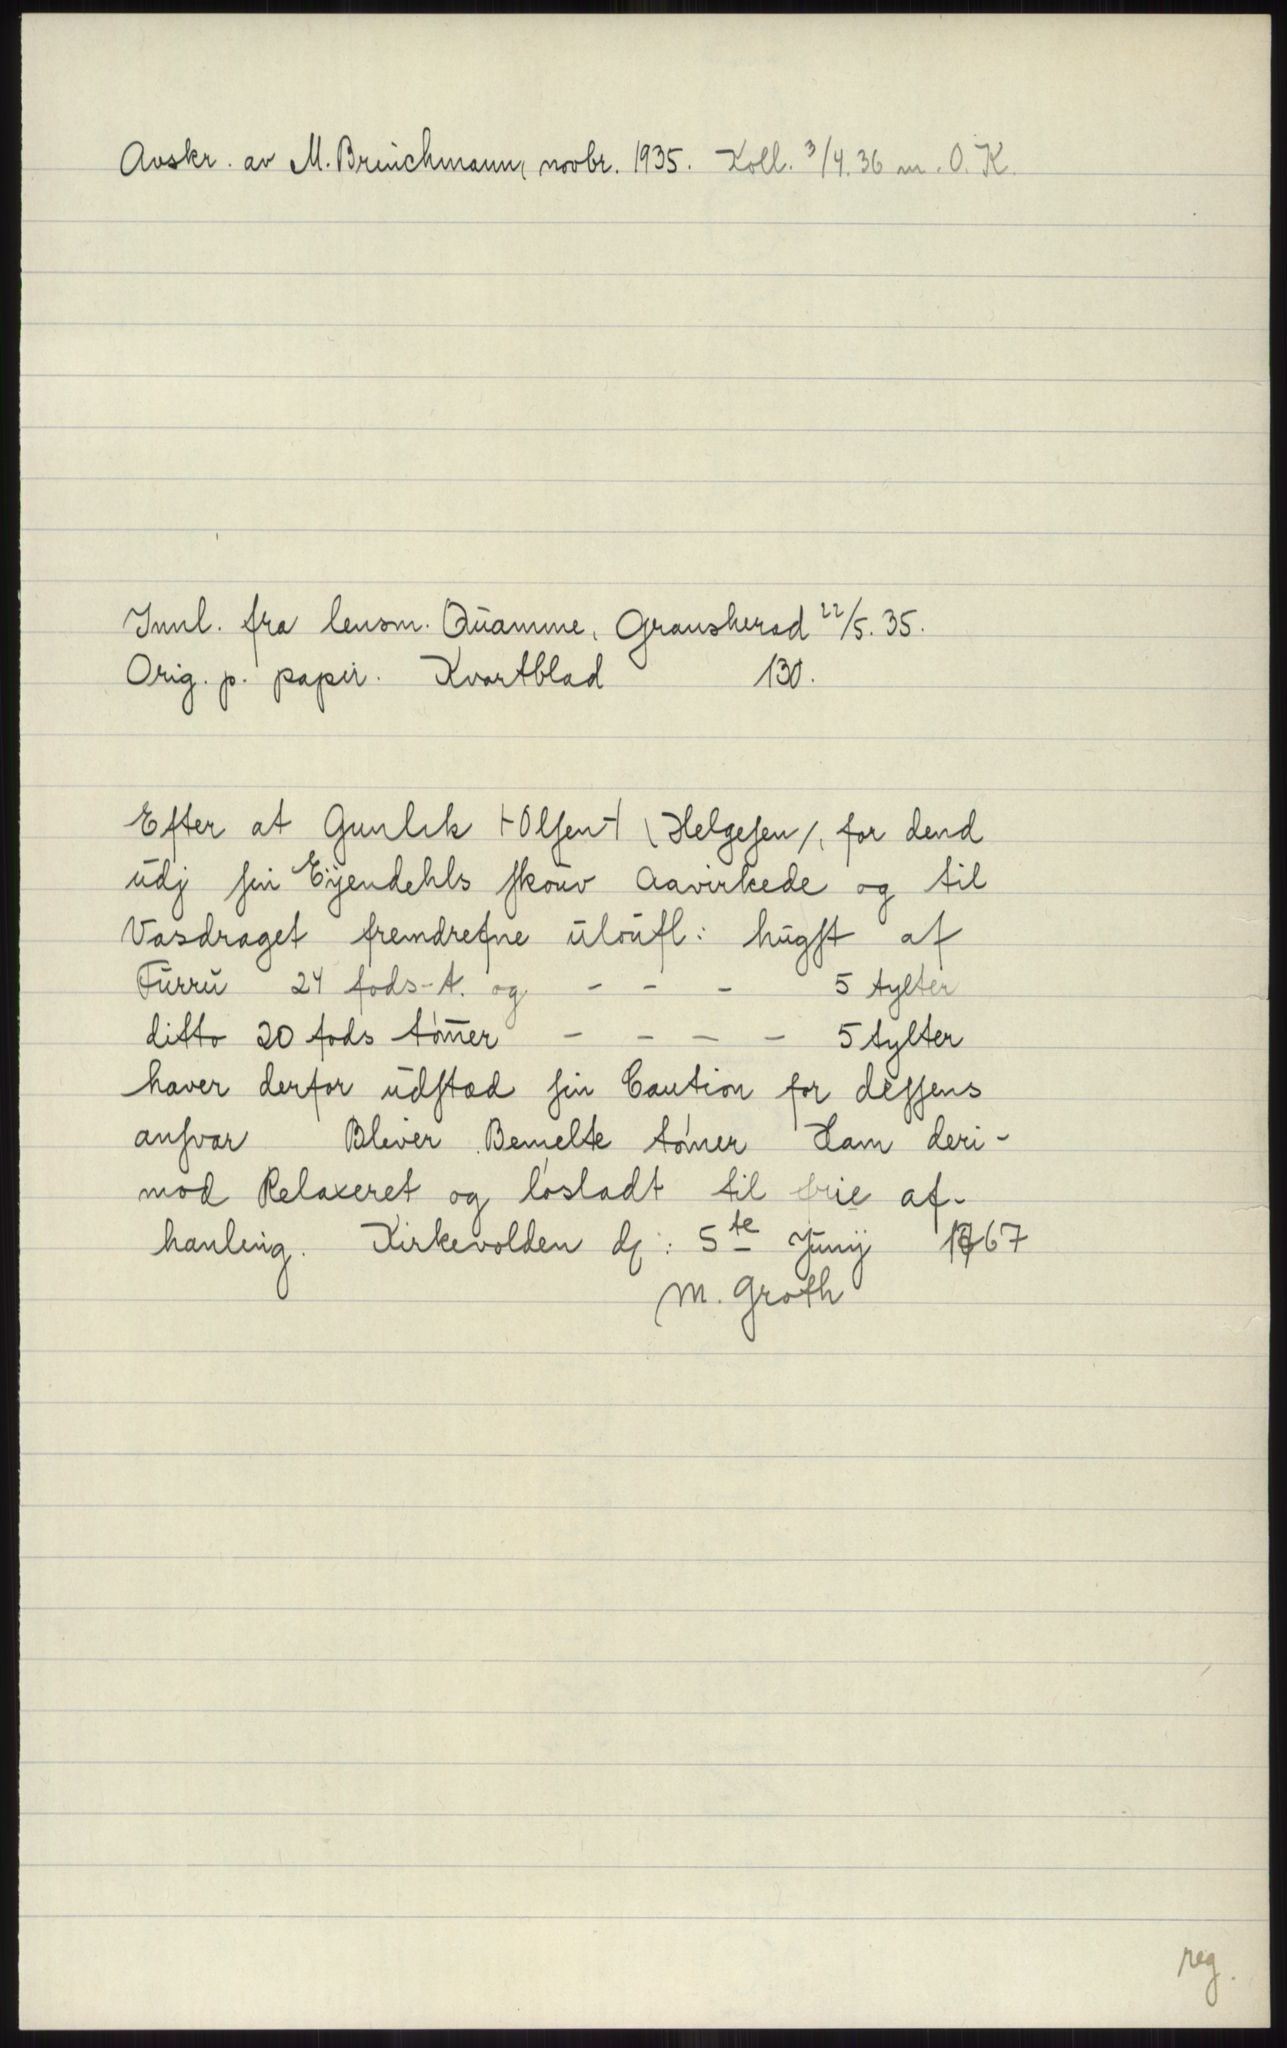 Avskr. av M. Brinchmann, novbr. 1935. Koll. 3/4. 36 m. O. K.
Innl. fra lensm. Quamme, Gransherad 22/5. 35.
Orig. p. papir. Kvartblad 130.
Efter at Gunlek ⊢Olſen⊣ (Helgeſen/, for dend
udj ſin Eÿendehls ſkouv Aavirkede og til
Vasdraget fremdrefne uloufl: hugſt af
Furru 24 fods-t. og - - - 5 tylter
ditto 20 fods tøm̄er - - - - 5 tylter
haver derfor udſtæd ſin Caution for deſſens
anſvar Bliver Bemelte tømer Ham deri-
mod Relaxeret og løsladt til frie af-
hanling. Kirkevolden d: 5te Junÿ 1767
M. Groth
reg.